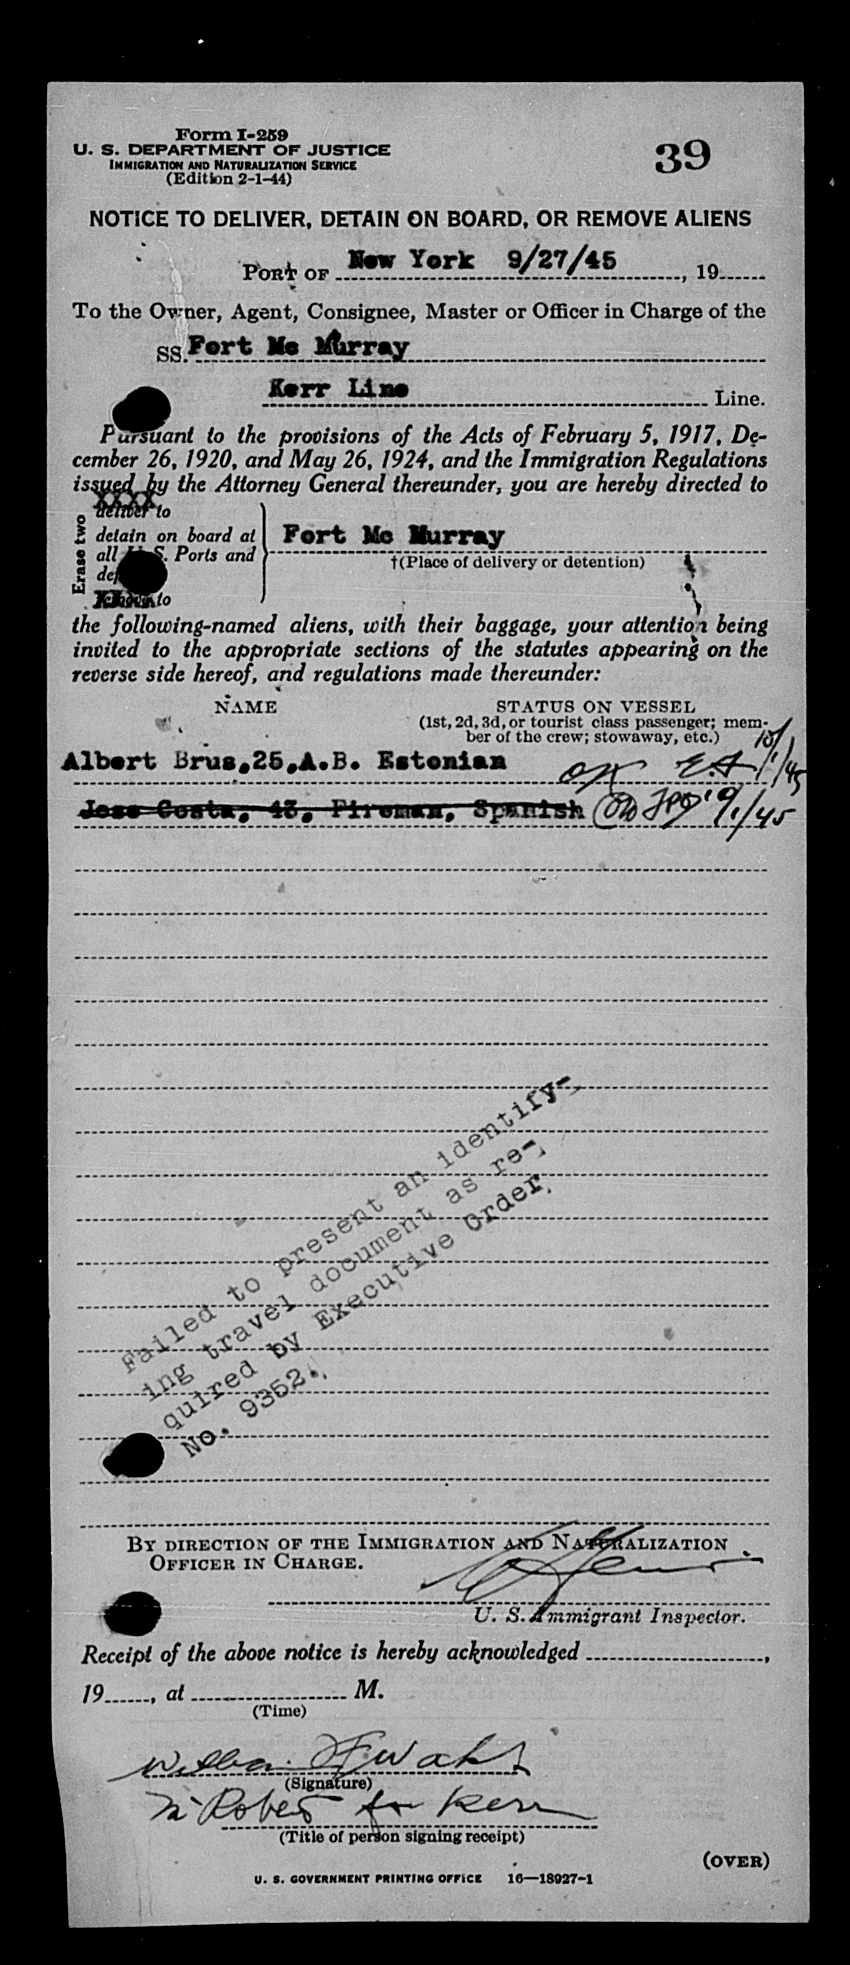 Form I-259
U. S. DEPARTMENT OF JUSTICE
IMMIGRATION AND NATURALIZATION SERVICE
(Edition 2-1-44)
39
NOTICE TO DELIVER, DETAIN ON BOARD, OR REMOVE ALIENS
PORT OF New York 9/27/45, 19
To the Owner, Agent, Consignee, Master or Officer in Charge of the
SS. Fort Mc Murray
Kerr Line Line.
Pursuant to the provisions of the Acts of February 5, 1917, De-
cember 26, 1920, and May 26, 1924, and the Immigration Regulations
issued by the Attorney General thereunder, you are hereby directed to
Erase two
XXXX
deliver to
detain on board at
all U. S. Ports and
Fort Mc Murray
†(Place of delivery or detention)
remove to
the following-named aliens, with their baggage, your attention being
invited to the appropriate sections of the statutes appearing on the
reverse side hereof, and regulations made thereunder:
NAME
STATUS ON VESSEL
(1st, 2d, 3d, or tourist class passenger; mem-
ber of the crew; stowaway, etc.)
Albert Brus,25,A.B. Estonian OK 10/1/45
Jose Costa, 43, Fireman, Spanish 10/1/45
Failed to present an identify-
ing travel document as re-
quired by Executive Order
No. 9352.
BY DIRECTION OF THE IMMIGRATION AND NATURALIZATION
OFFICER IN CHARGE.
U. S. Immigrant Inspector.
Receipt of the above notice is hereby acknowledged ,
19 , at M.
(Time)
William
(Signature)
for Kerr
(Title of person signing receipt)
(OVER)
U. S. GOVERNMENT PRINTING OFFICE 16—18927-1